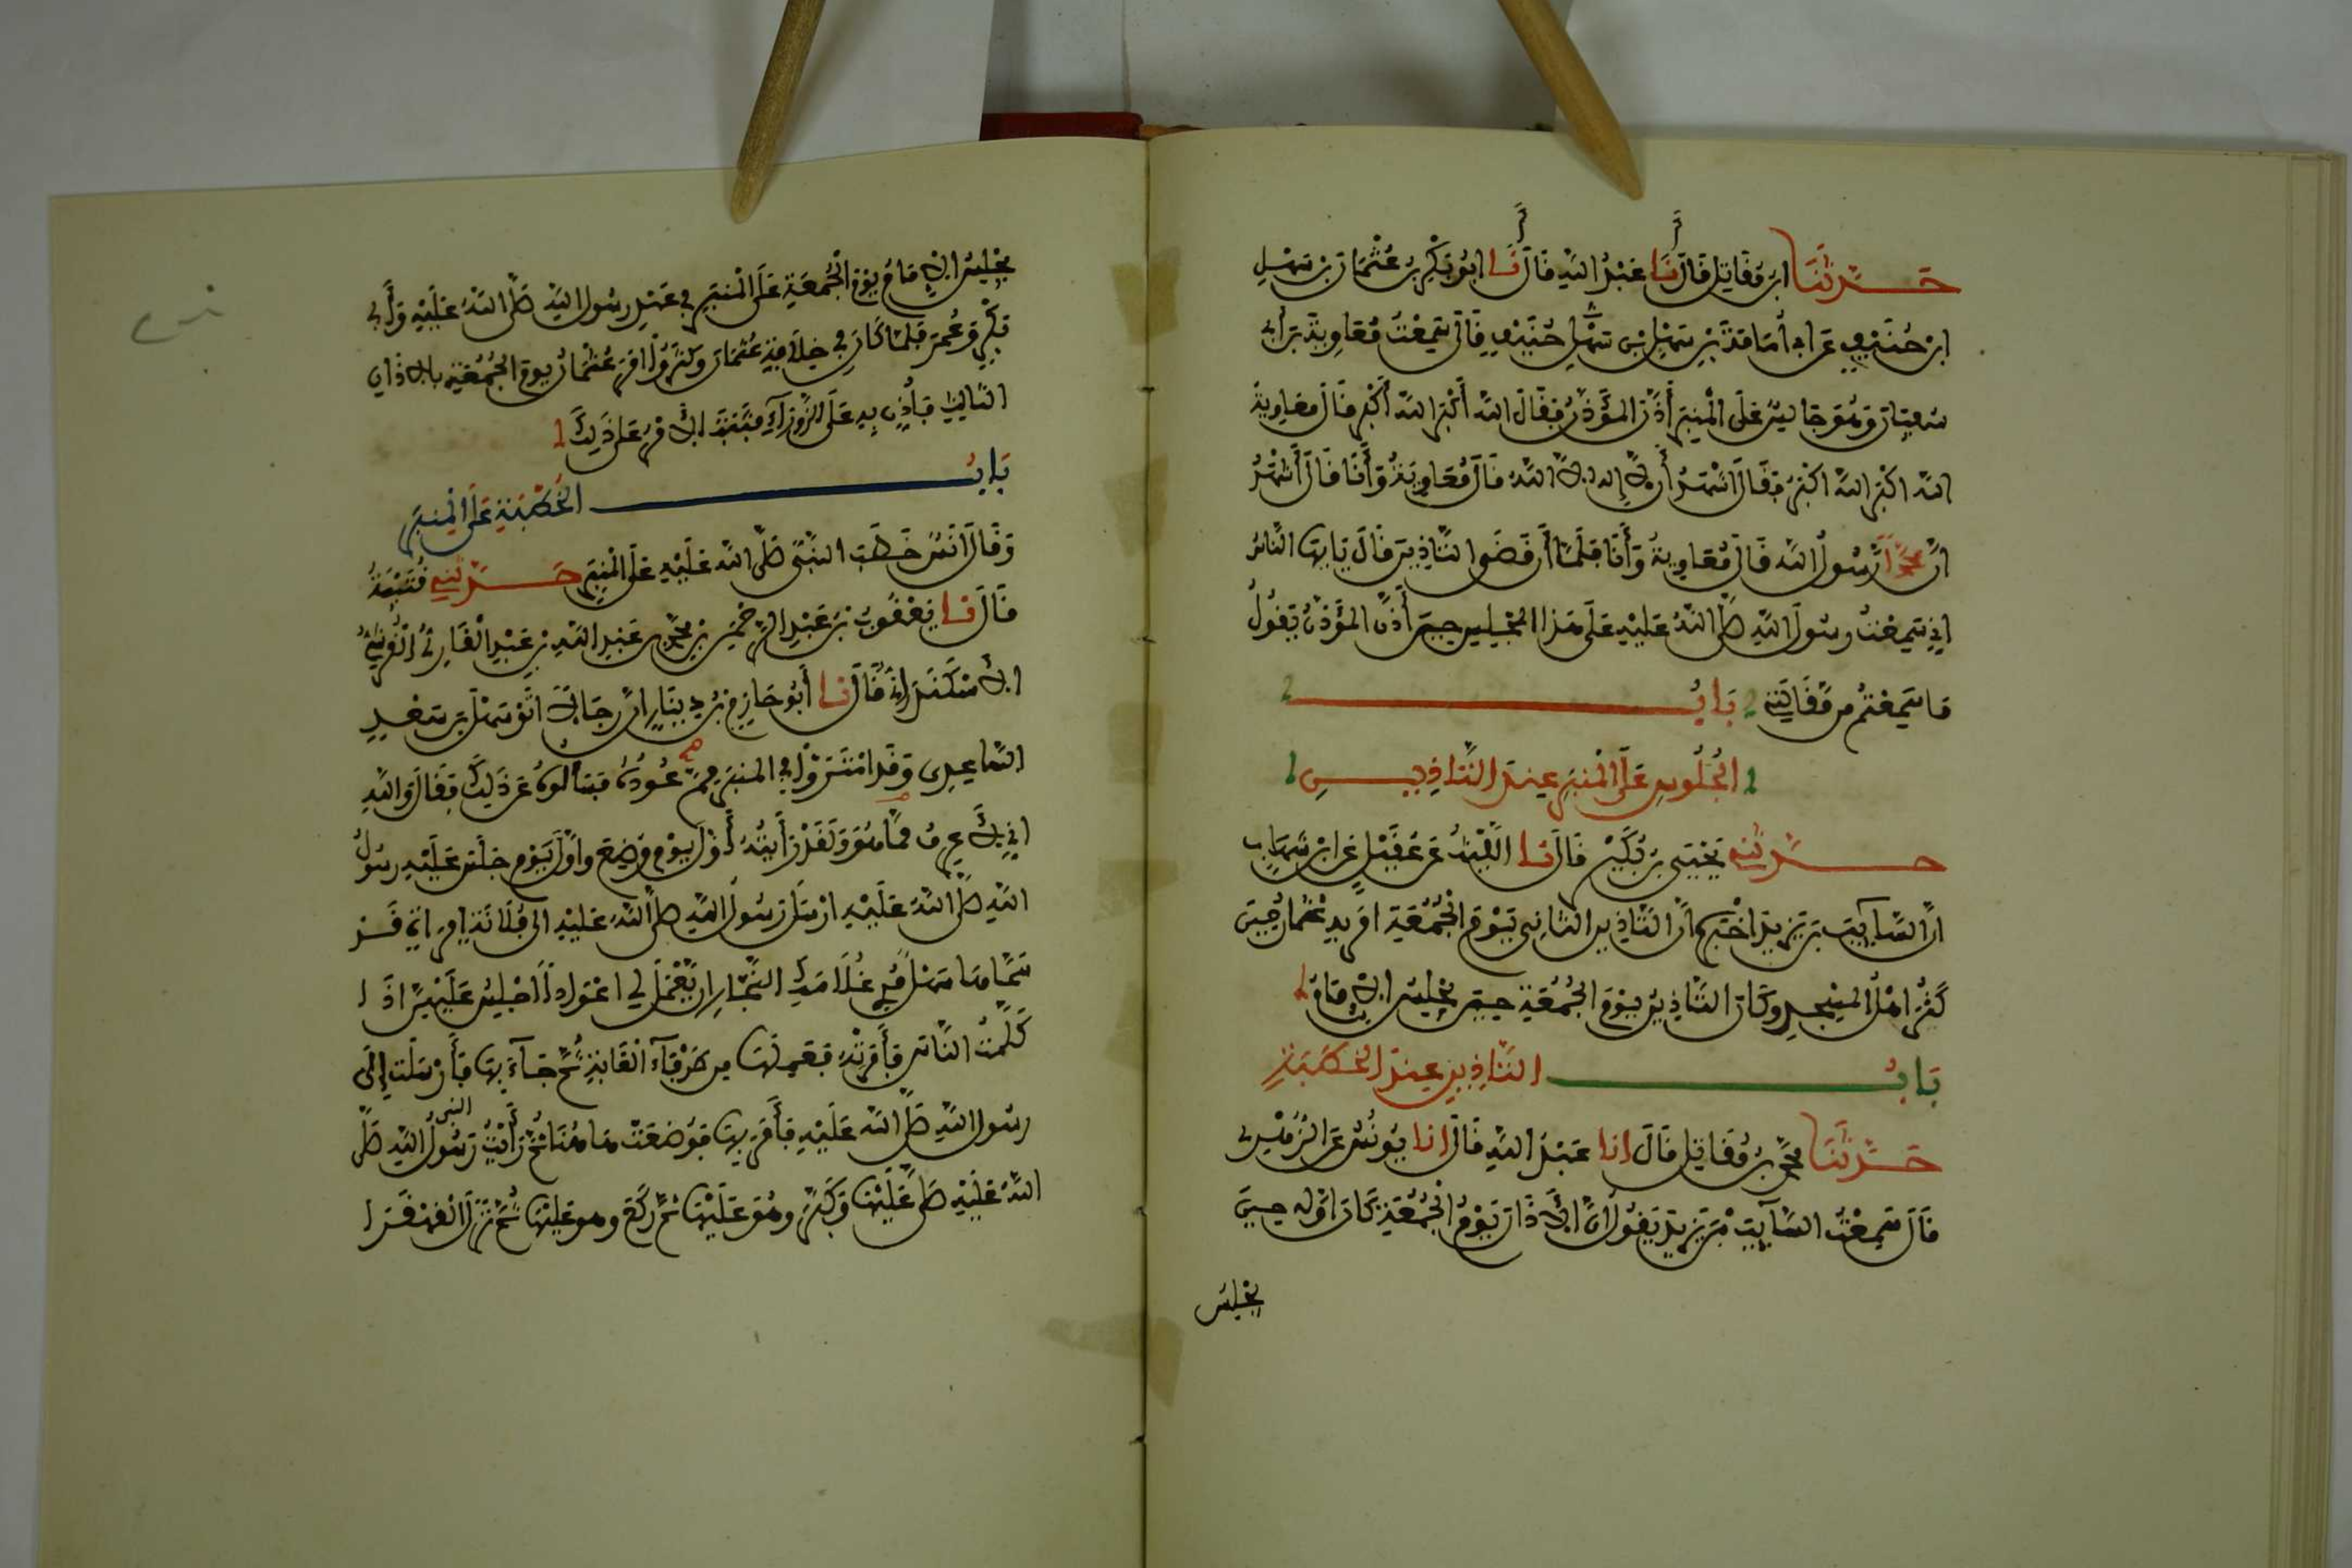 حَدَّثَنَا ابن مُقَاتِل قَالَ أنَا عَبْدُ اللهِ قَالَ أنَا ابُو بَكْرِ بنُ عُثْمَانَ بنِ سَهْلِ
ابنِ حُنَيْفٍ عَن ابِي أُمَامَةَ بْنِ سَهْلِ بْنِ حُنَيْفٍ قَالَ سَمِعْتُ مُعَاوِيَةَ بنَ أبِي
سُفيَانَ وَهُوَ جَالِسٌ عَلَى الْمِنْبَرِ أَذَّنَ المؤَذِّنُ فَقَالَ اللهُ أَكْبَرُ اللهُ أَكْبَرُ قَالَ معَاوِيَةُ
اللهُ اكْبَرُ اللهُ اكْبَرُ فَقَالَ اشْهَدُ أن لَّا إِلهَ الَّا اللهُ قَالَ مُعَاوِيَةُ وَأَنَا قَالَ أَشْهَدُ
انَّ مُحَمَّداً رَّسُولُ اللهِ قَالَ مُعَاوِيَةُ وَأَنَا فَلَمَّا أن قَضَوا التَّاذِينَ قَالَ يَا أَيُّهَا النَّاسُ
إنِّي سَمِعْتُ رسُولَ اللهِ صَلَّى اللهُ عَلَيْهِ عَلَى هَذا المجْلِسِ حِينَ أَذَّنَ المؤَذِّنُ يَقُولُ
مَا سَمِعْتُم مِن مَّقَالَتِي بَابُ
الجُلُوسِ عَلَى الْمِنبَرِ عِندَ التَّاذِيــنِ
حَدَّثَنِي يَحْيَى بنُ بُكَيْرٍ قَالَ نا اللَّيْثُ عَن عُقَيْلٍ عَنِ ابنِ شِهَابٍ
انَّ السَّائِبَ بنَ يَزِيدَ اخْبَرَهُ انَّ التَّاذِينَ الثَّانِي يَوْمَ الْجُمُعَةِ امَرَ بِهِ عُثْمَانُ حِينَ
كَثُرَ اهْلُ المسْجِدِ وكَانَ التَّاذِينُ يَوْمَ الجُمُعَةِ حِينَ يَجْلِسُ الِامَامُ
بَابُ التَّاذِينِ عِندَ الخُطبَةِ
حَدَّثَنَا مُحَمَّدُ بنُ مُقَاتِلٍ قَالَ انا عَبْدُ اللهِ قَالَ انا يُونُسُ عَنِ الزُّهْرِي
قَالَ سَمِعْتُ السَّائِبَ بْنَ يَزِيدَ يَقُولُ انَّ الَاذَانَ يَوْمَ الْجُمُعَةِ كَانَ اوَّلُه حِينَ
يَجْلِسُ
يَجْلِسُ الِامَامُ يَوْمَ الْجُمُعَةِ عَلَى الْمِنبَرِ فِي عَهْدِ رسُولِ اللهِ صَلَّى اللهُ عَلَيْهِ وَأَبِي
بَكْرٍ وَعُمَرَ فَلَمَّا كَانَ فِي خِلَافَةِ عُثْمَانَ وَكَثُرُوْا امَرَ عُثْمَانُ يوم الجُمُعَةِ بالاذَانِ
الثَّالِثِ فَأُذِّن بِهِ عَلَى الزَّوْرَآءِ فَثَبَتَ الَامْرُ عَلَى ذَلِكَ
بَابُ الخُطْبَةِ عَلَى الْمِنبَرِ
وَقَالَ انَسٌ خَطَبَ النَّبِيُّ صَلَّى اللهُ عَلَيْهِ عَلَى الْمِنبَرِ حَدَّثَنِي قُتَيْبَةُ
قَالَ نا يَعْقُوبُ بْنُ عَبْدِ الرَّحْمَنِ بنِ مُحَمَّدِ بنِ عَبْدِ اللهِ بنِ عَبْدِ الْقَارِيُّ الْقُرَشِيُّ
الِاسْكَنْدَرَانِيُّ قَالَ نا أَبُو حَازِمِ بْنُ دِينَارٍ انَّ رِجَالًا اتَوْ سَهْلَ بْنَ سَعْدٍ
السَّاعِدِي وَقَدِ امْتَرَوْا فِي المنبَرِ مِمَّ عُودُهُ فَسَأَلُوهُ عَن ذَلِكَ فَقَالَ وَاللهِ
انِّي لَأَعرِفُ مِمَّا هُوَ وَلَقَدْ رَأَيْتُهُ أَوَّلَ يَوْمٍ وُضِعَ واوَّلَ يَوْمٍ جَلَسَ عَلَيْهِ رسُولُ
اللهِ صَلَّى اللهُ عَلَيْهِ ارْسَلَ رَسُولُ اللهِ صَلَّى اللهُ عَلَيْهِ الَى فُلَانَةَ امرَاةٍ قَدْ
سَمَّاهَا سَهْلٌ مُرِي غُلَامَكِ النَّجَّارَ ان يَّعْمَلَ لِي اعْوَاداً اجْلِسُ عَلَيْهِنَّ اذَا
كَلَّمْتُ النَّاسَ فَأَمَرَتْهُ فَعَمِلَهَا مِن طَرْفَآءِ الْغَابَةِ ثُمَّ جَآءَ بِهَا فَأَرْسَلَتْ إِلَى
رسُولِ اللهِ صَلَّى اللهُ عَلَيْهِ فَأَمَرَ بِهَا فَوُضِعَتْ هَا هُنَا ثُمَّ رَأَيْتُ رَسُولَ النبي اللهِ صَلَّى
اللهُ عَلَيْهِ صَلَّى عَلَيْهَا وَكَبَّرَ وهُوَ عَلَيْهَا ثُمَّ رَكَعَ وهو عَلَيْهَا ثُمَّ نَزَلَ الْقَهْقَرَا